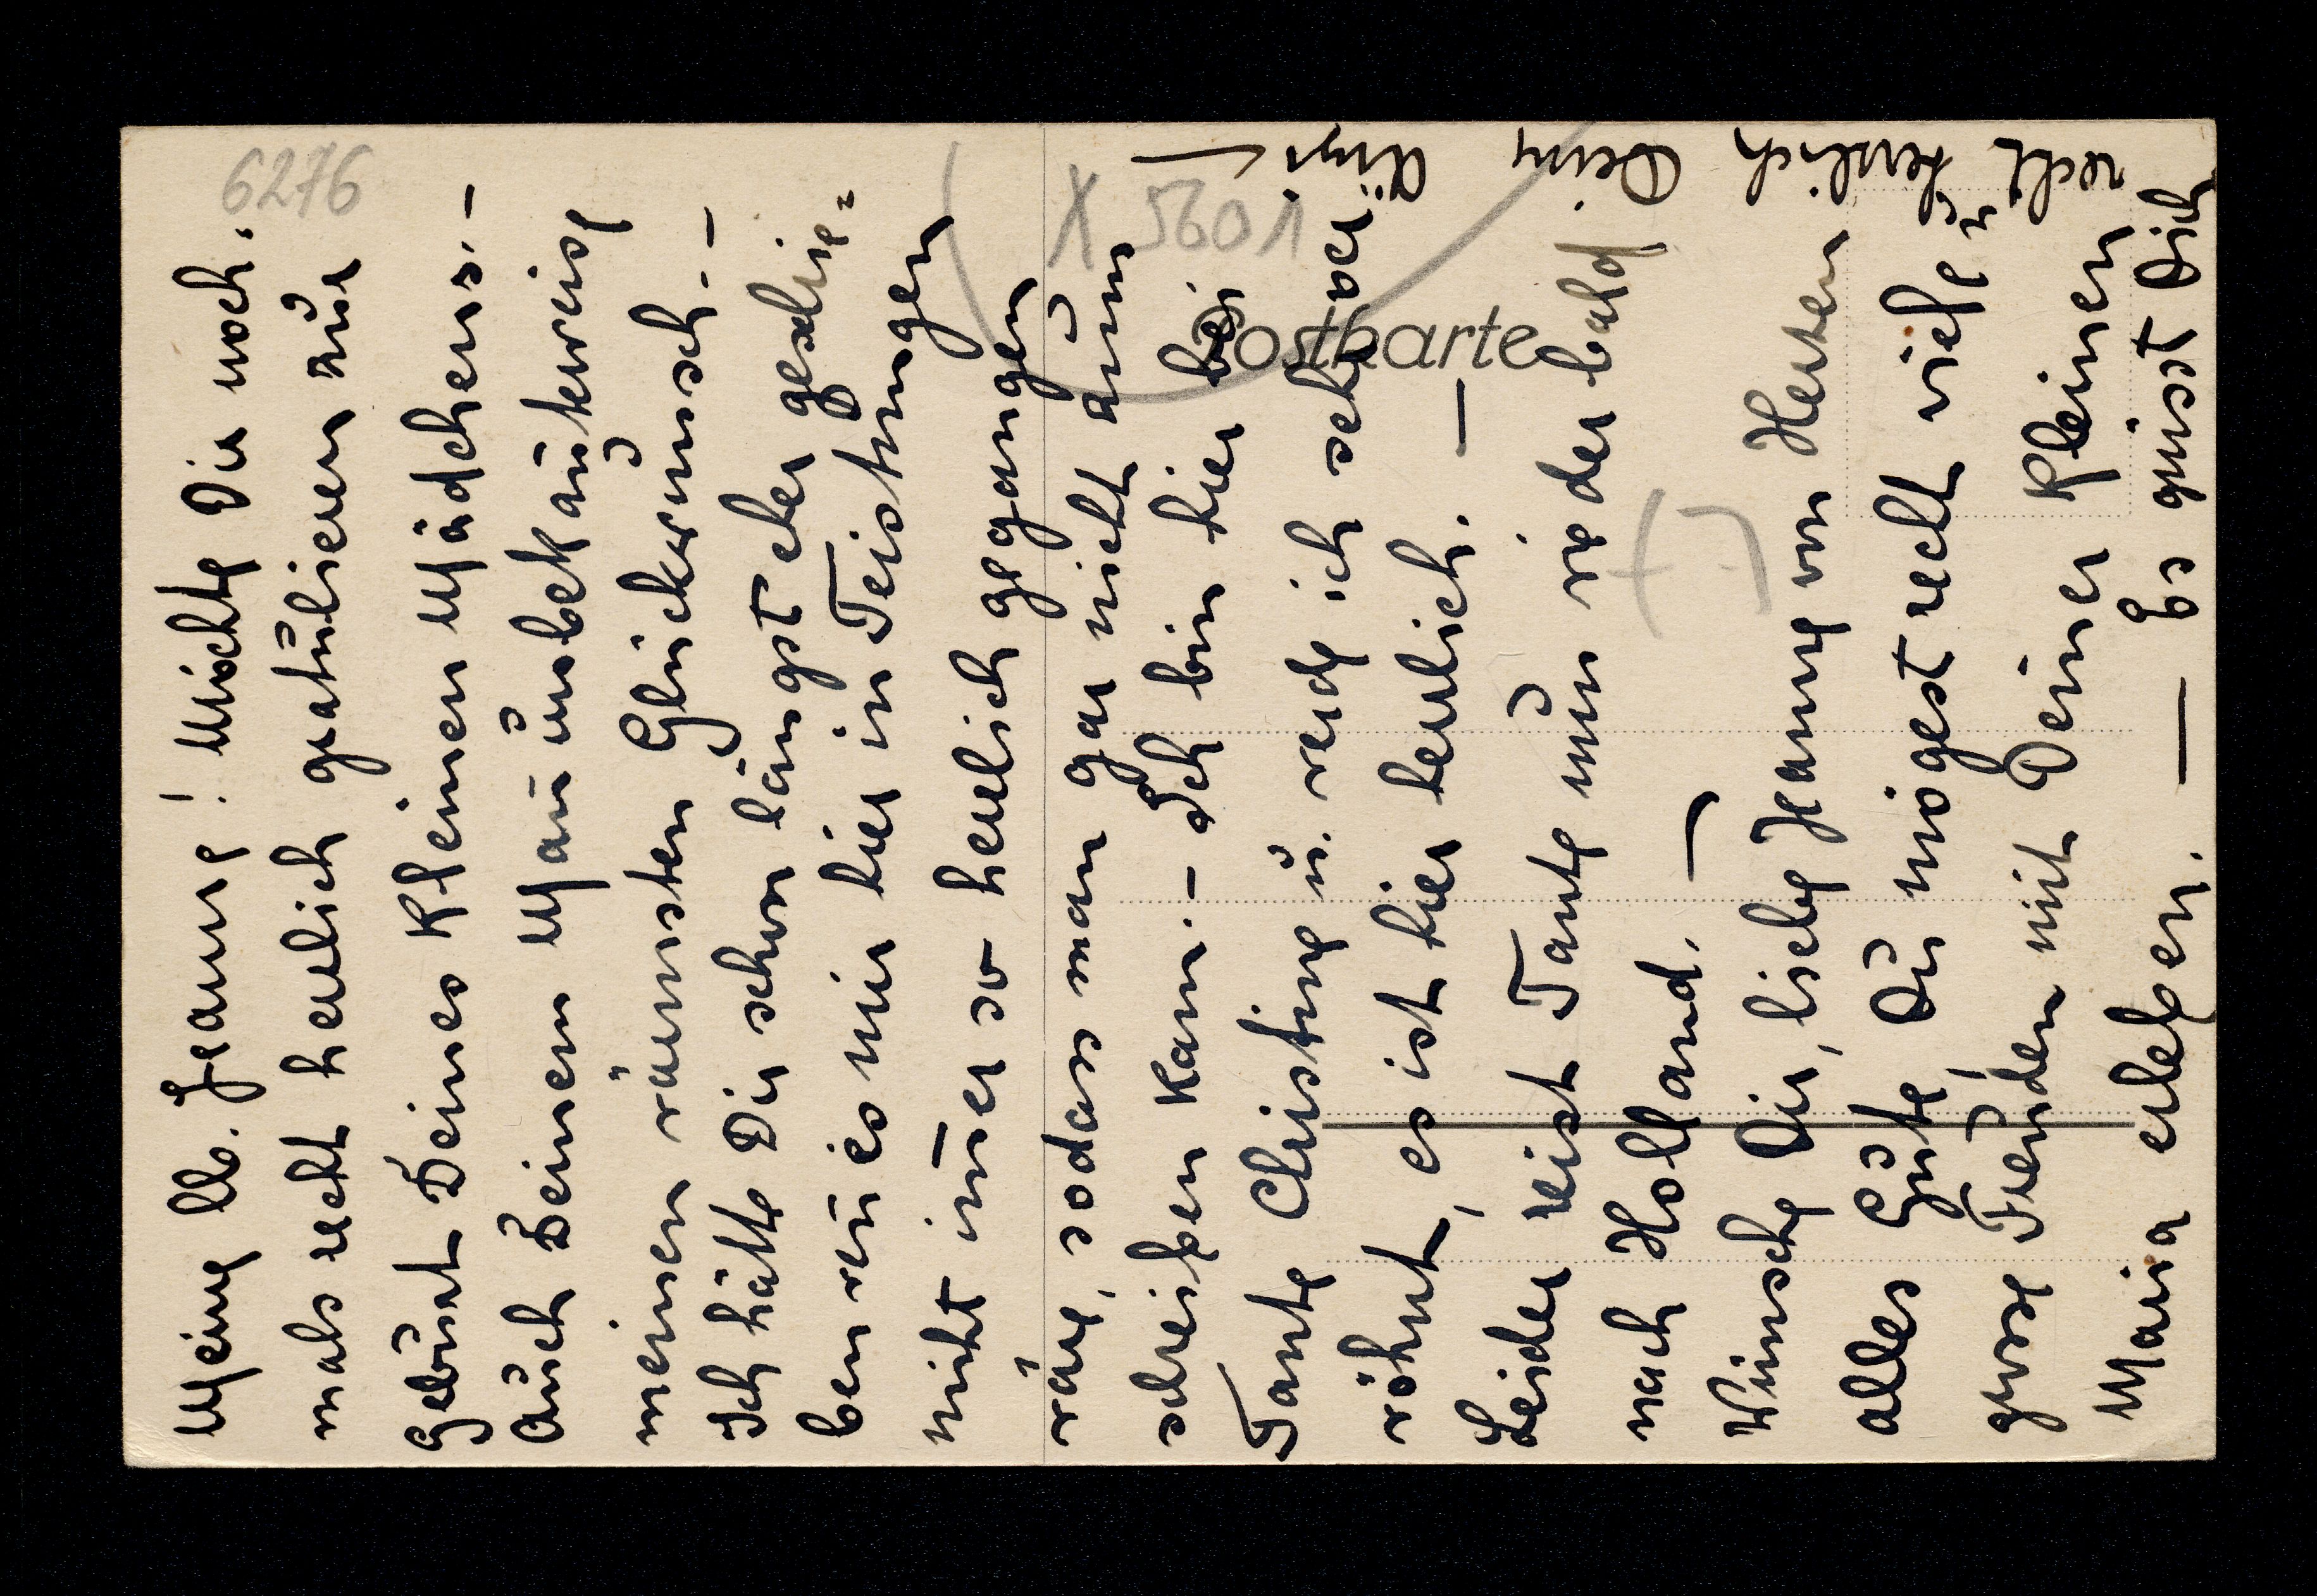 Meine lb. Jeanne! Möchte Dir noch-
mals recht herzlich gratulieren zur
Geburt Deines kleinen Mädchens. -
Auch Deinem Mann unbekannterweise
meinen wärmsten Glückwunsch. -
Ich hätte Dir schon längst eher geschrie=
ben wen es mir hier in Teistungen
nicht im̄er so herrlich gegangen
wäre, sodass man gar nicht zum
schreiben kam. - Ich bin hier bei
Tante Christine u. werde ich sehr ver-
wöhnt, es ist hier herrlich. -
Leider reist Tante nun wieder bald
nach Holland. -
Wünsche Dir, liebe Jeanne von Herzen
alles Gute, Du mögest recht viele u.
grosse Freuden mit Deiner kleinen
Maria erleben. - Es grüsst Dich
recht
herzlich
Deine
Änne
Postkarte
6276
X 5601
(-)